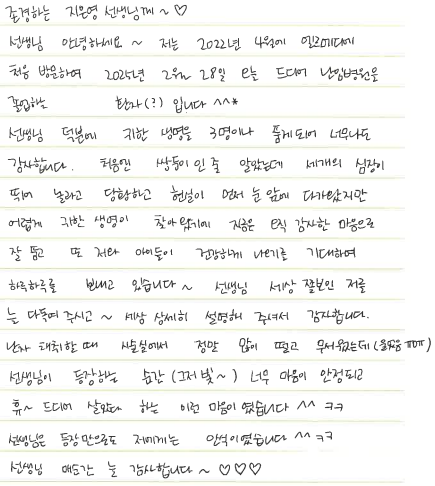 존경하는 지은영 선생님께~♡
선생님 안녕하세요~ 저는 2022년 4월에 엘르메디에
처음 방문하여 2025년 2월 28일 오늘 드디어 난임병원을
졸업하는 환자(?) 입니다 ^^*
선생님 덕분에 귀한 생명을 3명이나 품게되어 너무나도
감사합니다. 처음엔 쌍둥이인 줄 알았는데 세개의 심장이
뛰어 놀라고 당황하고 현실이 먼저 눈앞에 다가왔지만
어렵게 귀한 생명이 찾아왔기에 지금은 오직 감사한 마음으로
잘 품고 또 저와 아이들이 건강하게 나기를 기대하며
하루하루를 보내고 있습니다~ 선생님 세상 쫄보인 저를
늘 다독여 주시고~ 세상 상세히 설명해 주셔서 감사합니다.
난자 채취할 때 시술실에서 정말 많이 떨고 무서웠는데
선생님이 등장하는 순간 (그저 빛~) 너무 마음이 안정되고
휴~ 드디어 살았다 하는 이런 마음이였습니다 ^^ ㅋㅋ
선생님은 등장만으로도 저에게는 안식이였습니다 ^^ ㅋㅋ
선생님 매순간 늘 감사합니다~ ♡♡♡